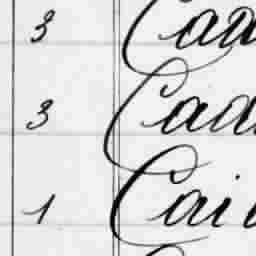 3 Cad
3 Cad
1 Cai